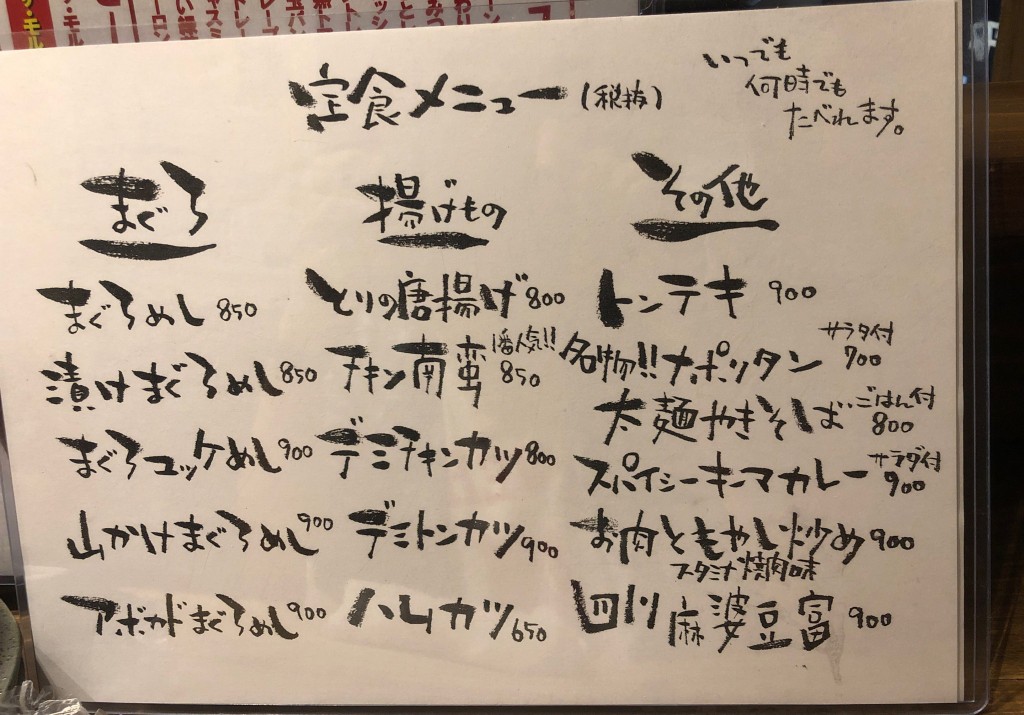 定食メニュー(税抜)
いつでも
何時でも
たべれます。
まぐろ
まぐろめし 850
漬けまぐろめし 850
まぐろユッケめし 900
山かけまぐろめし 900
アボカドまぐろめし 900
揚げもの
とりの唐揚げ 800
1番人気!!
チキン南蛮 850
デミチキンカツ 800
デミトンカツ 900
ハムカツ 650
その他
トンテキ 900
サラダ付
名物!!ナポリタン 700
ごはん付
太麺やきそば 800
サラダ付
スパイシーキーマカレー 900
お肉ともやし炒め 900
スタミナ焼肉味
四川麻婆豆富 900